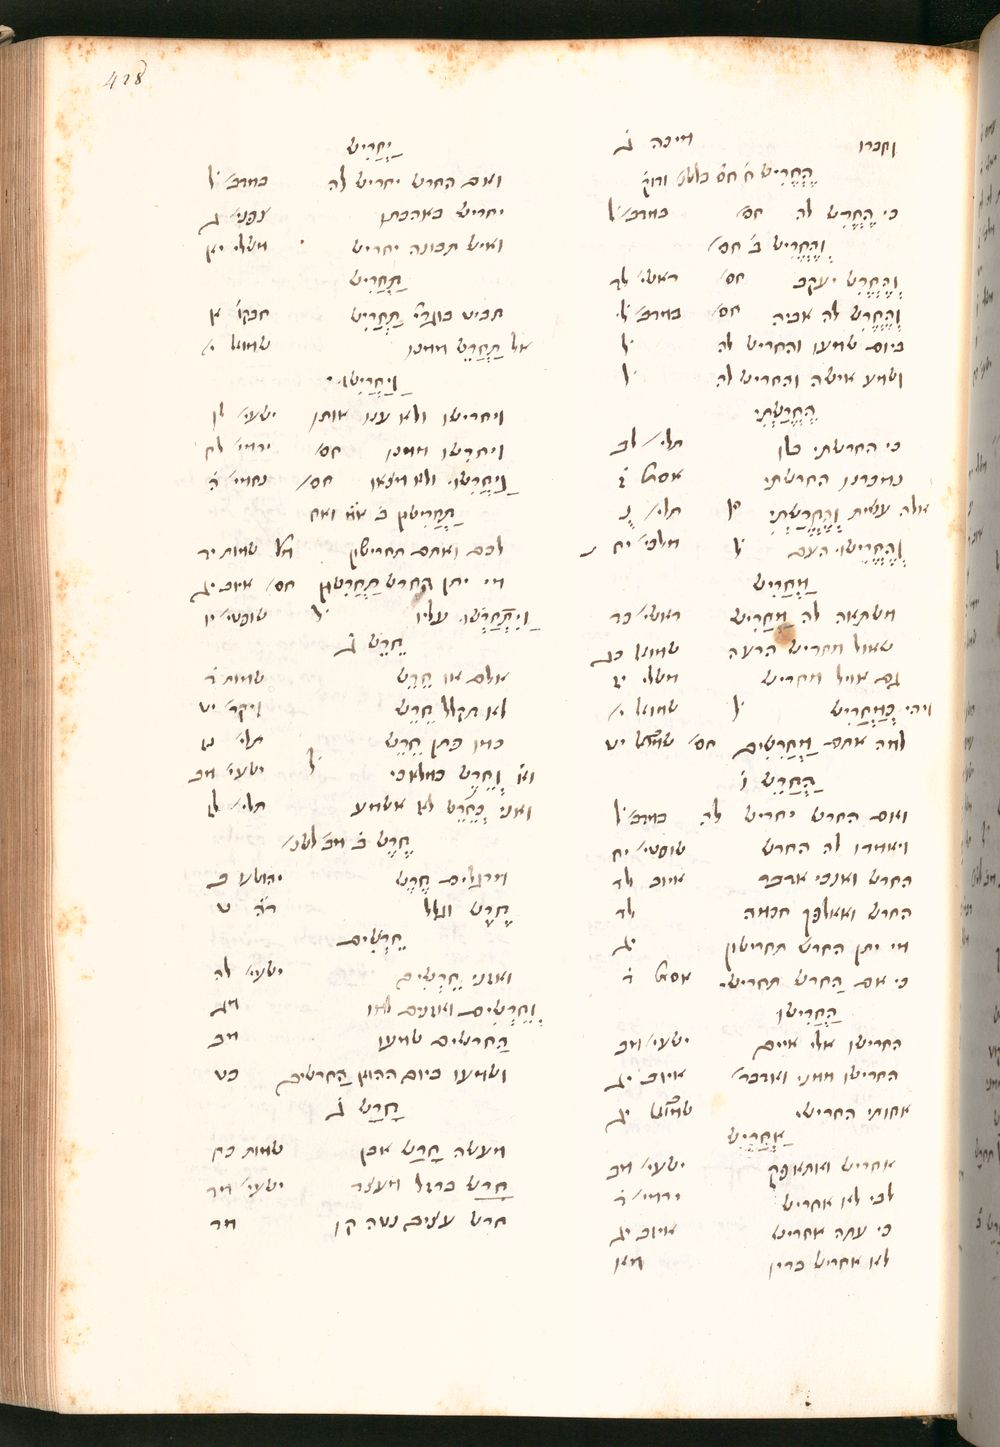 428
וחברו מיכה ג
הֶחֱרִישׁ
כי הֶחֱרִשׁ לה חס׳ במדב׳ ל
וְהֶחֱרִישׁ ב׳ חס׳
וְהֶחֱרִשׁ יעקב חס׳ ראשי׳ לד
וְהֶחֱרִשׁ לה אביה חס׳ במדב׳ ל
ביום שמעו והחריש לה ל
ושמע אישה והחריש לה ל
הֶחֱרַשְׁתִּי
כי החרשתי בלו תלי׳ לב
במכרנו החרשתי אסת׳ ז
אלה עשית וְהֶחֱרַשְׁתִּי תלי׳ נ
וְהֶחֱרִישׁוּ העם ל מלכי׳ יח
מַחֲרִישׁ
משתאה לה מַחֲרִישׁ ראשי׳ כד
שאול מחריש הרעה שמוא׳ כג
גם אויל מחריש משלי יז
ויהי כְּמַחֲרִישׁ ל שמוא׳ י
למה אתם מַחֲרִשִׁים חס׳ יט
הַחֲרֵשׁ ו
ואם החרש יחריש לה במדב׳ ל
ויאמרו לה החרש שופטי׳ יח
החרש ואנכי אדבר איוב לד
החרש ואאלפך חכמה לד
מי יתן החרש תחרישון יג
כי אם הַחרש תחרישי אסת׳ ד
הַחֲרִישׁוּ
החרישו אלי איים ישעי׳ מב
החרישו ממני ואדבר׳ איוב יג
אחותי החרישי יג
אַחֲרִישׁ
אחריש ואתאפק ישעי׳ מב
לבי לא אחריש ירמי׳ ד
כי עתה אחריש איוב יג
לא אחריש בדיו מא
יַחֲרִישׁ
ואם החרש יחריש לה במדב׳ ל
יחריש באהבתו צפני׳ ג
ואיש תבונה יחריש משלי יא
תַחֲרִישׁ
תביט בוגדי׳ תַחֲרִישׁ חבקו׳ א
אל תַחֲרֵשׁ ממנו שמוא׳ י
וַיַּחֲרִישׁוּ
ויחרישו ולא ענו אותו ישעי׳ לו
ויחרשו ממנו חס׳ ירמי׳ לח
וַיַּחֲרִשׁוּ ולא מצאו חס׳ נחמי׳ ה
תַחֲרִישׁוּן ב
לכם ואתם תחרישון שמות יד
מי יתן החרש תַחֲרִשׁוּן חס׳ איוב יג
וַיִּתְחָרְשׁוּ עליו ל שופטי׳ יו
חֵרֵשׁ ג
אלם או חֵרֵשׁ שמות ד
לא תקלל חֵרֵשׁ ויקר׳ יט
כמו פתן חֵרֵשׁ תלי׳ נח
וְחֵרֵשׁ כמלאכי ל ישעי׳ מב
ואני כְחֵרֵשׁ לא אשמע תלי׳ לח
חֶרֶשׁ ב׳
מרגלים חֶרֶשׁ יהושע ב
חֶרֶשׁ וגלל
חֵרְשִׁים
ואזני חֵרְשִׁים ישעי׳ לה
וְחֵרְשִׁים ואזנים למו מג
הַחרשים שמעו מב
ושמעו ביום ההוא הַחרשים כט
חָרַשׁ ג
מעשה חָרַשׁ אבן שמות כח
חָרַשׁ ברזל מעצד ישעי׳ מד
חרש עצים נטה קו מד